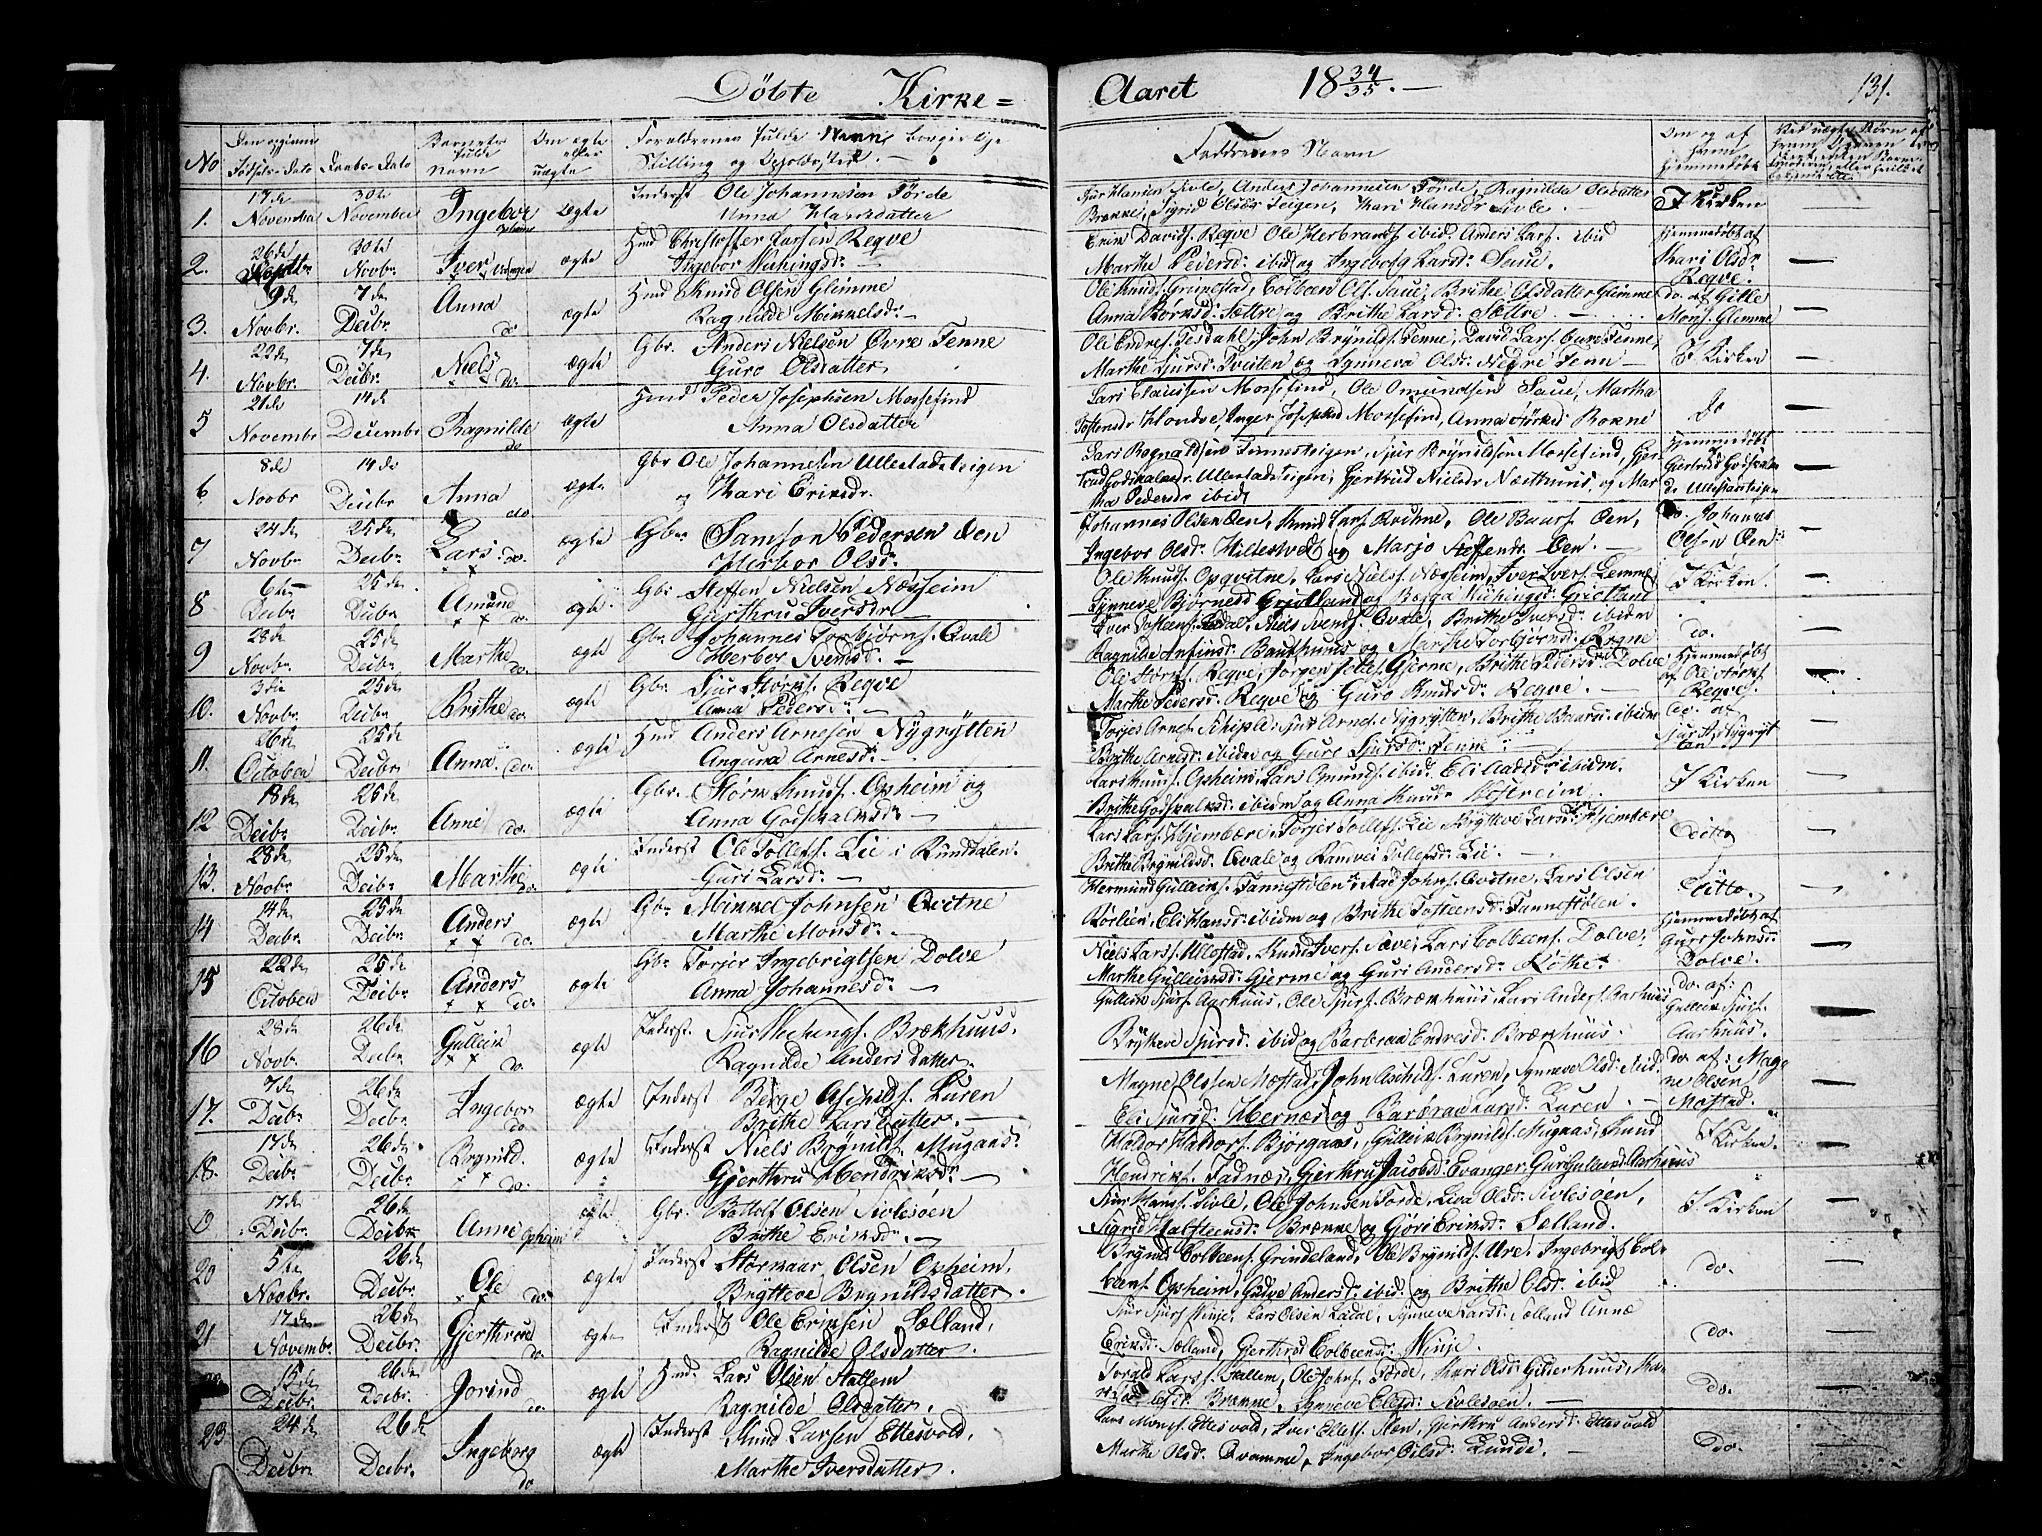 Döbte Kirke= Aaret 18 34/35. —
131.
No
Födsels-Dato Daabs-Dato
Barnets fulde Navn
Om ægte eller uægte
Forældrenes fulde Navn, borgerlige
Stilling og Opholdssted. —
Faddrenes Navn
Om og af hvem hjemmedøbt
1. 17de November 30te November Ingebor Opheim ægte
Inderst Ole Johannesen Förde
Anna Hansdatter
Sjur Hansen Sivle, Anders Johannesen Förde, Ragnilde Olsdatter
Brække, Sigrid Olsdr Teigen, Kari Hansdr Sivle.
I Kirken
2. 26de 30te Novbr. Iver ægte
Hmd Christoffer Larsen Reqve
Ingebor Wikingsdr.
Erik Davids. Reqve Ole Herbrands. ibid, Anders Lars. ibid
Marthe Peiersd: ibid og Ingeborg Larsd: Saue.
Hjemmedöbt af
Kari Olsdr
Reqve.
3. 9de Novbr. 7de Decbr. Anna do ægte
Hmd Knud Olsen Glimme
Ragnilde Mikkelsd: —
Ole Knuds. Grimestad, Colbeen Ols. Saue, Brithe Olsdatter Glimme
Anna Börksd: Sættre og Brithe Larsd: Sættre. —
do. af Gitle
Mons. Glimme
4. 20de Novbr. 7de Decbr. Niels do. ægte
Gbr. Anders Nielsen Övre Fenne
Guro Olsdatter
Ole Endres. Tesdahl, John Brynilds. Fenne, David Lars. Övre Fenne,
Marthe Sjursd: Tveiten og Synneva Olsd: Nedre Fenn —
I Kirken
5 21de Novembr 14de Decembr Ragnilde do ægte
Hmd Peder Josephsen Mossefind
Anna Olsdatter
Lars Clausen Mossefind, Ole Omundsen Saue, Martha
Tostensdr Hondve, Inger Josephsd Mossefind, Anna Störksd: Rokne
do
6 8de Novbr 14de Decbr Anna do ægte
Gbr Ole Johannesen Ullestadteigen
og Kari Eriksdr.
Lars Rognaldsen Fennesteigen, Sjur Brynildsen Mossefind, Gjer-
trud Godskalksdr. Ullestadteigen, Gjertrud Nielsdr Næsthuus, og Mar-
tha Pedersdr ibid
Hjemmedöbt
7 24de Novbr 25de Decbr Lars do. ægte
Gbr. Samson Pedersen Öen
Herbor Olsd:
Johannes Olsen Öen, Knud Lars. Rokne, Ole Baars. Öen,
Ingebor Olsd: Hildestvedt og Marjo Steffensdr. Öen. —
do. Johannes
Olsen Öen
8 6te Decbr 25de Decbr. Amund do. ægte
Gbr Steffen Nielsen Næsheim
Gjerthru Iversdr —
Ole Knuds. Opqvitne, Lars Niels. Næsheim, Iver Ivers. Lemme,
Synneve Björnesd Grioland og Bægga Wikingsd: Grioland
I Kirken.
9 28de Novbr. 25de Decbr. Marthe do. ægte
Gbr Johannes Torbjörns. Qvale
Herbor Svendsd: —
Iver Tosteens. Lydal, Niels Svends. Qvale, Brithe Iversd: ibidem
Ragnilde Anfinsd: Baufthuus og Marthe Torbjörnsd: Rogne
do.
10. 3die Novbr. 25de Decbr. Brithe do. ægte
Gbr. Sjur Störks. Reqve
Anna Pedersd: —
Ole Störks. Reqve, Jörgen Jetles. Gjerme, Brithe Peiersd: Dolve
Marthe Pedersd: Reqve og Guro Knudsd: Reqve. —
Hjemmedöbt
af Ole Störks.
Reqve.
11. 26de October 25de Decbr. Anna do. ægte
Hmd Anders Arnesen Nygrytten
Anguna Arnesd: —
Torjes Arnes. Skiple, Sjur Arnes. Nygrytten, Brithe Baarsd: ibidm
Brithe Arnesd: ibidm og Guro Sjursd: Fenne. —
do. af
Sjur A. Nygryt
ten
12 18de Decbr. 25de Decbr. Anne do. ægte
Gbr. Störk Knuds. Opheim og
Anna Godskalksd: —
Lars Knuds. Opheim, Lars Omunds. ibid. Eli Aadsd: ibidm.
Brithe Godskalksd: ibidm og Anna Knudsd: Tostreim.
I Kirken
13. 28de Novbr. 25de Decbr. Marthe do. ægte
Inderst Ole Tollefs. Lie i Rundalen.
Guri Larsd: —
Lars Lars. Kjembære, Torjer Tollefs. Lie, Brytteve Larsd: Kjembære
Brithe Brynildsd: Qvale og Ramvei Tollefsd: Lie.
ditto
14 14de Decbr. 25de Decbr. Anders do. ægte
Gbr. Mikkel Johnsen Qvitne
Marthe Monsd: —
Hermund Gulleiks. Fannestölen, Aad Johns. Qvitne, Lars Olsen
Rörlien, Eli Hansd: ibidm og Brithe Tosteensd: Fannestölen.
ditto.
15 22de October 25de Decbr. Anders do. ægte
Gbr Torjer Ingebrigtsen Dolve
Anna Johannesd: —
Niels Lars. Ullestad, Knud Ivers. Sæve, Lars Colbeens. Dolve,
Marthe Gulleiksd: Gjerme og Guri Andersd: Röthe.
Hjemmedöbt af
Guro Johnsd:
Dolve.
16 28de Novbr. 26de Decbr. Gulleik do. ægte
Inderst. Sjur Wikings. Brækhuus.
Ragnilde Anders Datter.
Gulleik Sjurs. Aarhuus, Ole Sjurs. Brækhuus, Lars Anders. Aarhuus,
Brytteve Sjursd: ibid og Barbraa Endresd: Brækhuus.
do. af:
Gulleik Sjurs.
Aarhuus.
17. 7de Decbr. 26de Decbr. Ingebor do ægte
Inderst Börge Aschilds. Luren
Brithe Lars Datter. —
Magne Olsen Mestad, John Aschilds. Luren, Synneve Olsd: ibid.
Eli Sjursd: Hernæs og Barbraa Larsd: Luren. —
do. af: Mag-
ne Olsen
Mestad.
18. 17de Decbr. 26de Decbr. Brynild. do. ægte
Inderst Niels Brynilds. Mugaas:
Gjerthru Hendriksd: —
Haldor Haldors. Björgaas, Gulleik Brynilds. Mugaas, Knud
Hendriks. Fadnæs, Gjerthru Jacobsd: Evanger, Guri Gulleiksd: Aarhuus
I Kirken.
19 17de Decbr. 26de Decbr. Anne Opheim ægte
Gbr. Botolf Olsen Sivlesöen
Brithe Eriksd: —
Sjur Hans. Sivle, Ole Johnsen Förde, Liva Olsd: Sivlesöen,
Sigrid Halsteensd: Brække og Gjöre Eriksd: Sælland.
I Kirken
20 5te Novbr. 26de Decbr. Ole do. ægte
Inderst Störkaar Olsen Opheim,
Brytteve Brynildsdatter.
Brynild Colbeens. Grindeland, Ole Brynilds. Ure, Ingebrigt Col-
beens. Opheim, Gudve Andersd: ibid. og Brithe Olsd: ibid
do.
21. 17de Novembr. 26de Decbr. Gjerthrud do. ægte
Inderst Ole Eriksen Sælland,
Ragnilde Olsdatter.
Sjur Sjurs. Winje, Lars Olsen Lydal, Synneve Larsd: Sælland Annæ
Eriksd: Sælland, Gjerthrud Colbeensd: Winje.
do.
15de Decbr. 26de Decbr. Jorind do. ægte
Hmd. Lars Olsen Hallem
Ragnilde Olsdatter.
Torald Lars. Hallem, Ole Johns. Förde, Mari Olsd: Gilderhuus,
Brække, Synneve Olsd: Sivlesöen. —
do.
23 24de Decbr. 26de Decbr. Ingeborg do ægte
Inderst Knud Larsen Ettesvold.
Marthe Iversdatter.
Lars Mons. Ettesvold, Iver Ellefs. Hæn, Gjerthru Andersd: Ettesvold
Marthe Olsd: Qvamme, Ingebor Nilsd: Lunde. —
do.